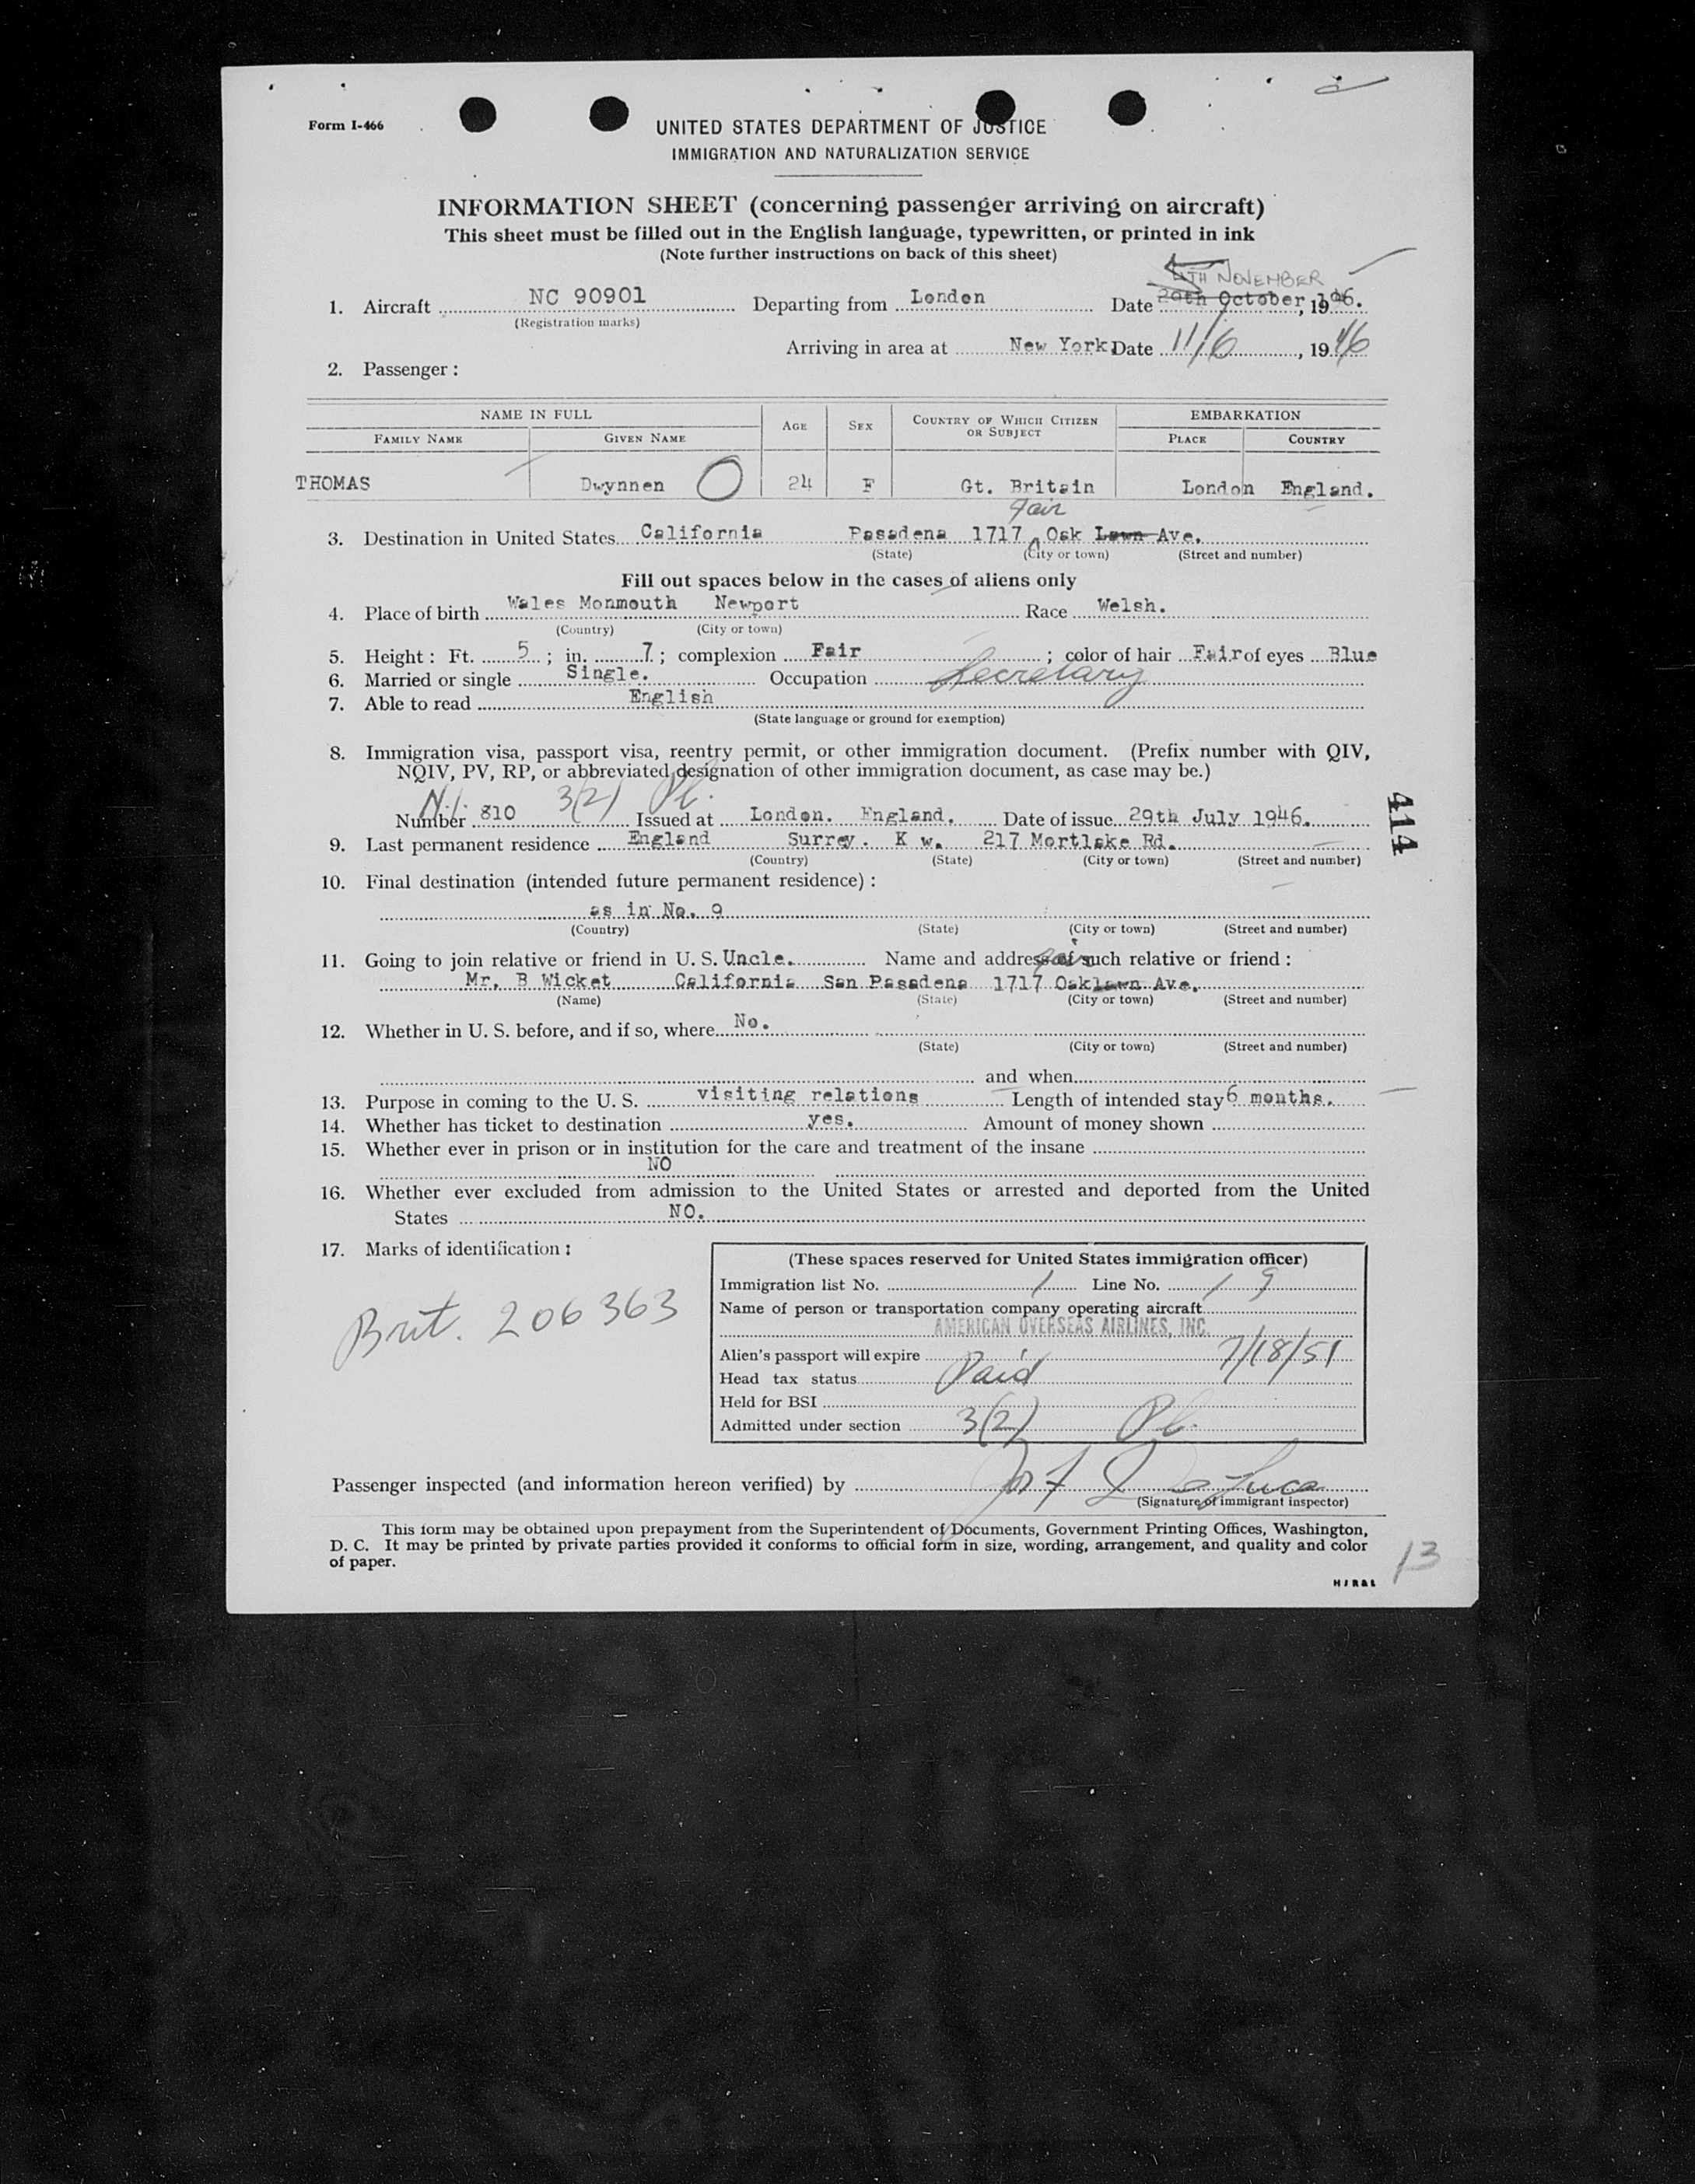 Form I-466
UNITED STATES DEPARTMENT OF JUSTICE
IMMIGRATION AND NATURALIZATION SERVICE
INFORMATION SHEET (concerning passenger arriving on aircraft)
This sheet must be filled out in the English language, typewritten, or printed in ink
(Note further instructions on back of this sheet)
4TH NOVEMBER
1. Aircraft NC 90901 Departing from London Date 29th October, 1946.
(Registration marks)
Arriving in area at New York Date 11/6, 1946
2. Passenger:
NAME IN FULL AGE SEX COUNTRY OF WHICH CITIZEN OR SUBJECT EMBARKATION
FAMILY NAME GIVEN NAME PLACE COUNTRY
THOMAS Dwynnen 24 F Gt. Britain London England.
Fair
3. Destination in United States California Pasadena 1717 Oak Lawn Ave.
(State) (City or town) (Street and number)
Fill out spaces below in the cases of aliens only
4. Place of birth Wales Monmouth Newport Race Welsh.
(Country) (City or town)
5. Height: Ft. 5; in. 7; complexion Fair; color of hair Fair of eyes Blue
6. Married or single Single. Occupation Secretary
7. Able to read English
(State language or ground for exemption)
8. Immigration visa, passport visa, reentry permit, or other immigration document. (Prefix number with QIV,
NQIV, PV, RP, or abbreviated designation of other immigration document, as case may be.)
3(2) Pl.
Number 810 Issued at London. England. Date of issue 29th July 1946.
414
9. Last permanent residence England Surrey. K w. 217 Mortlake Rd.
(Country) (State) (City or town) (Street and number)
10. Final destination (intended future permanent residence):
as in No. 9
(Country) (State) (City or town) (Street and number)
11. Going to join relative or friend in U. S. Uncle. Name and address of such relative or friend:
Mr. B Wicket California San Pasadena 1717 Oaklawn Ave.
(Name) (State) (City or town) (Street and number)
12. Whether in U. S. before, and if so, where No.
(State) (City or town) (Street and number)
and when
13. Purpose in coming to the U. S. visiting relations Length of intended stay 6 months.
14. Whether has ticket to destination yes. Amount of money shown
15. Whether ever in prison or in institution for the care and treatment of the insane
NO
16. Whether ever excluded from admission to the United States or arrested and deported from the United
States NO.
17. Marks of identification:
Brit. 206363
(These spaces reserved for United States immigration officer)
Immigration list No. 1 Line No. 19
Name of person or transportation company operating aircraft
AMERICAN OVERSEAS AIRLINES, INC.
Alien's passport will expire 7/18/51
Head tax status Paid
Held for BSI
Admitted under section 3(2) Pl.
Passenger inspected (and information hereon verified) by
(Signature of immigrant inspector)
This form may be obtained upon prepayment from the Superintendent of Documents, Government Printing Offices, Washington,
D. C. It may be printed by private parties provided it conforms to official form in size, wording, arrangement, and quality and color
of paper.
13
HJR&L